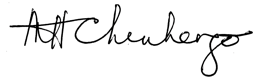 AH Chenhergo